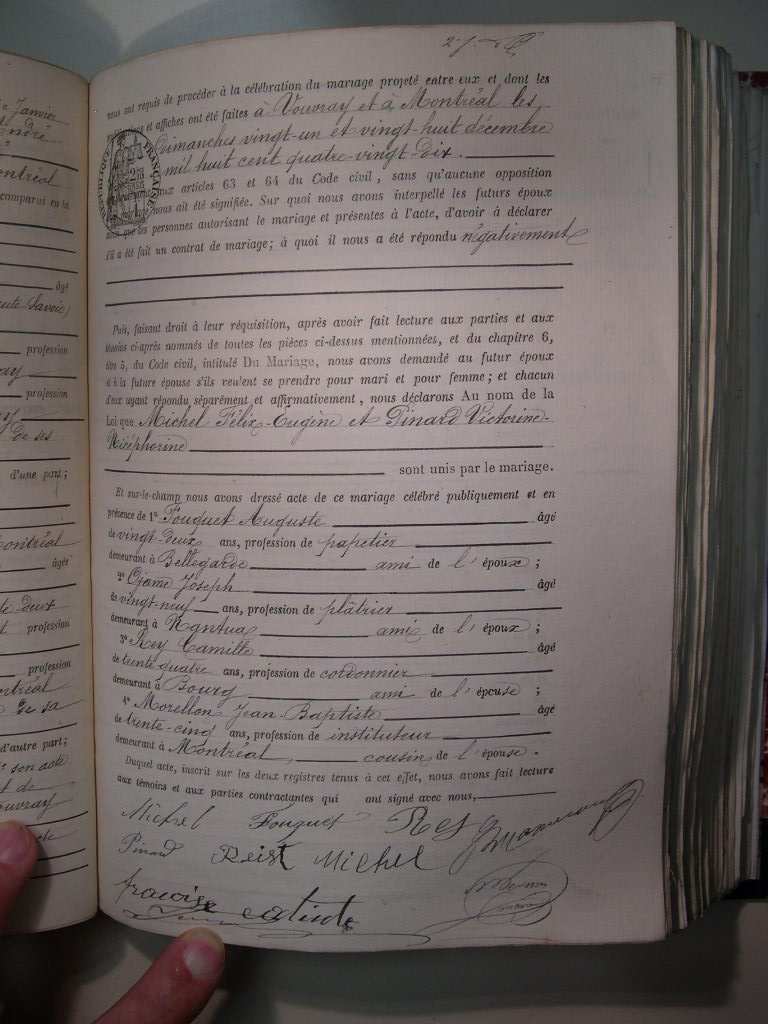 e Janvier
ndré
ntréal
comparui en la
âgé
ute Savoie)
profession
ray
profession
De ses
d'une part;
ontréal
âgée
te deux
profession
profession
ontréal
de sa
d'autre part;
son acte
et de
ouvray
nous ont requis de procéder à la célébration du mariage projeté entre eux et dont les
et affiches ont été faites à Vouvray et à Montréal les
Dimanches vingt-un et vingt-huit décembre
mil huit cent quatre-vingt-dix.
RÉPUBLIQUE FRANÇAISE
aux articles 63 et 64 du Code civil, sans qu'aucune opposition
nous ait été signifiée. Sur quoi nous avons interpellé les futurs époux
que les personnes autorisant le mariage et présentes à l'acte, d'avoir à déclarer
s'il a été fait un contrat de mariage; à quoi il nous a été répondu négativement
Puis, faisant droit à leur réquisition, après avoir fait lecture aux parties et aux
témoins ci-après nommés de toutes les pièces ci-dessus mentionnées, et du chapitre 6,
titre 5, du Code civil, intitulé Du Mariage, nous avons demandé au futur époux
et à la future épouse s'ils veulent se prendre pour mari et pour femme; et chacun
d'eux ayant répondu séparément et affirmativement, nous déclarons Au nom de la
Loi que Michel Félix-Eugène et Pinard Victorine-
Nicéphorine
sont unis par le mariage.
Et sur-le-champ nous avons dressé acte de ce mariage célébré publiquement et en
présence de 1° Fouquet Auguste âgé
de vingt-deux ans, profession de papetier
demeurant à Bellegarde ami de l'époux;
2° Ojame Joseph âgé
de vingt-neuf ans, profession de plâtrier
demeurant à Nantua ami de l'époux;
3° Rey Camille âgé
de trente-quatre ans, profession de cordonnier
demeurant à Bourg ami de l'épouse;
4° Morellon Jean-Baptiste âgé
de trente-cinq ans, profession de instituteur
demeurant à Montréal, cousin de l'épouse.
Duquel acte, inscrit sur les deux registres tenus à cet effet, nous avons fait lecture
aux témoins et aux parties contractantes qui ont signé avec nous,
Michel Fouquet Rey
Pinard Reist Michel